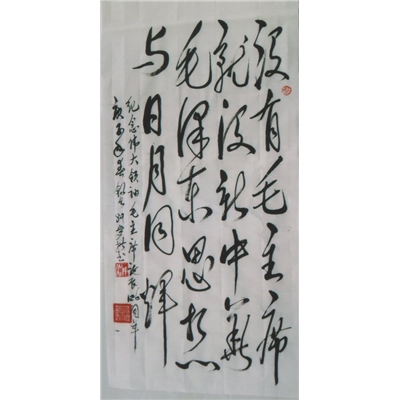 没有毛主席
就没新中华
毛泽东思想
与日月同辉
纪念伟大领袖毛主席诞辰周年
庚子年春